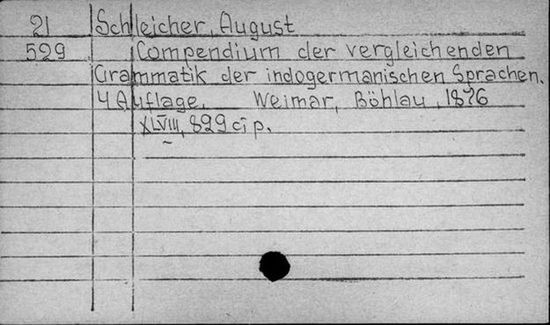 21 Schleicher, August
529 Compendium der vergleichenden
Grammatik der indogermanischen Sprachen.
4 Auflage. Weimar, Böhlau, 1876
XLVIII, 829 c̄ p.